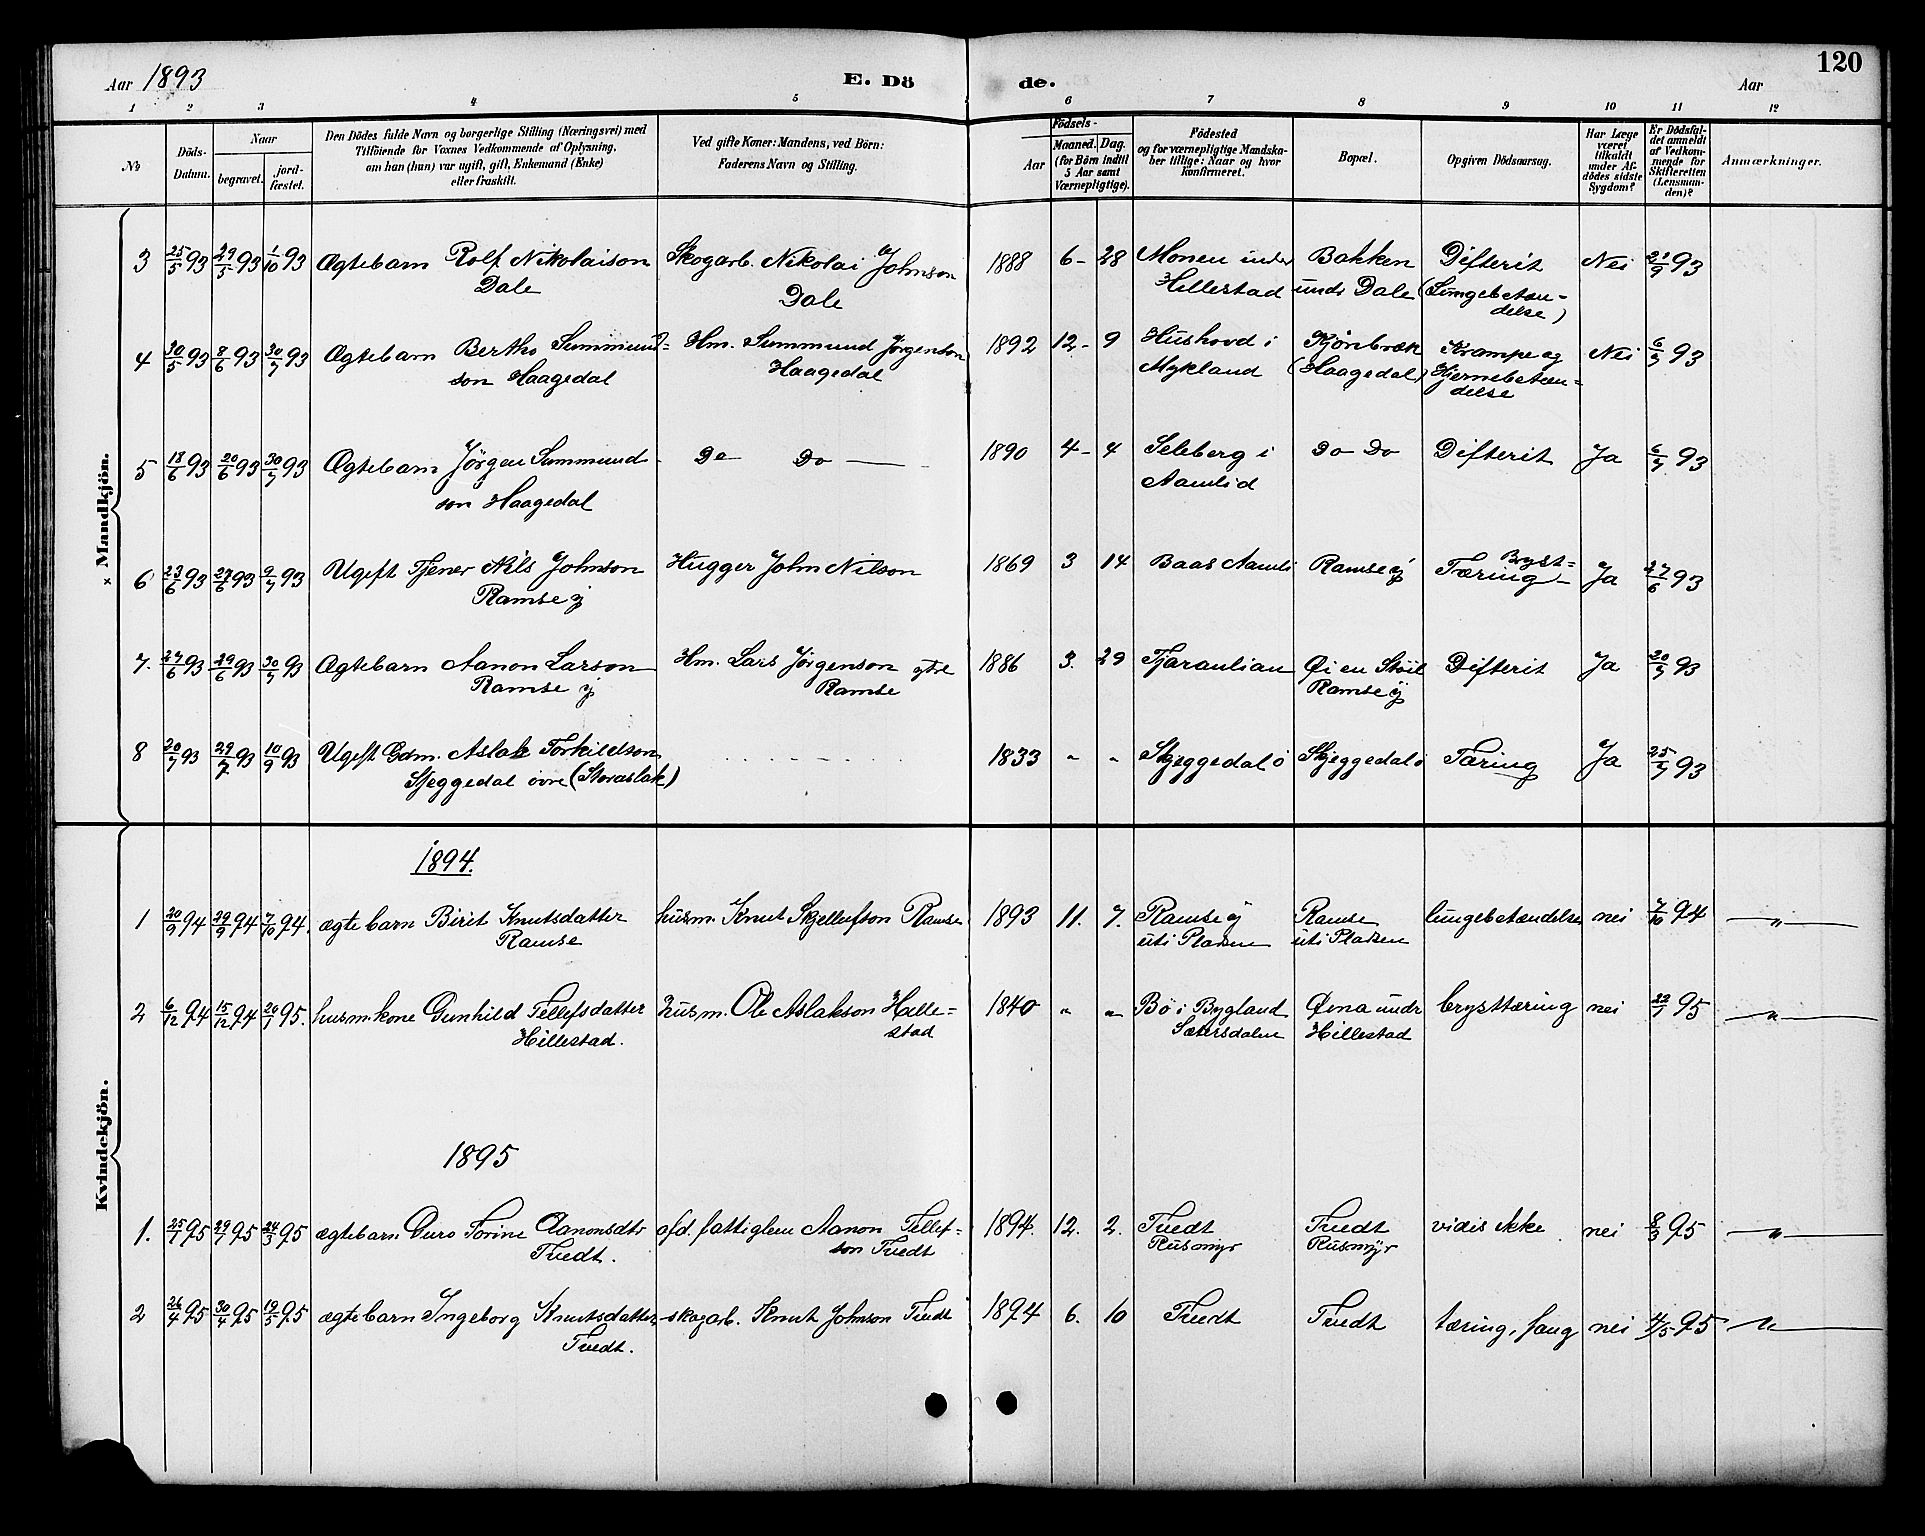 Aar 1893 E. Dö de. Aar 120
1 2 3 4 5 6 7 8 9 10 11 12
№ Döds-Datum. Naar begravet. jordfæstet. Den Dödes fulde Navn og borgerlige Stilling (Næringsvei) med Tilföiende for Voxnes Vedkommende af Oplysning, om han (hun) var ugift, gift, Enkemand (Enke) eller fraskilt. Ved gifte Koner: Mandens, ved Börn: Faderens Navn og Stilling. Födsels- Aar Maaned. Dag. (for Börn indtil 5 Aar samt Værnepligtige). Födested og for værnepligtige Mandskaber tillige: Naar og hvor konfirmeret. Bopæl. Opgiven Dödsaarsag. Har Læge været tilkaldt under Afdödes sidste Sygdom? Er Dödsfaldet anmeldt af Vedkommende for Skifteretten (Lensmanden)? Anmærkninger.
× Mandkjön.
3 25/5 93 29/5 93 1/10 93 Ægtebarn Rolf Nikolaison Skogarb. Nikolai Johnson 1888 6- 28 Monen under Bakken Difterit Nei 21/9 93
Dale Dale Hillestad under Dale (Lungebetæn-
delse)
4 30/5 93 8/6 93 30/7 93 Ægtebarn Bertho Summund- Hm. Summund Jörgenson 1892 12- 9 Hushovd i Kjönbræk Krampe og Nei 6/7 93
son Haagedal Haagedal Mykland (Haagedal) Hjernebetæn-
delse
5 18/6 93 20/6 93 30/7 93 Ægtebarn Jörgen Summund- Do Do 1890 4- 4 Seleberg i Do Do Difterit Ja 6/7 93
son Haagedal Aamlid
6 23/6 93 27/6 93 9/7 93 Ugift Tjener Nils Johnson Hugger John Nilson 1869 3 14 Baas Aamli Ramse ÿ Bryst- Ja 27/6 93
Ramse ÿ Tæring
7. 27/6 93 29/6 93 30/7 93 Ægtebarn Aanon Larson Hm. Lars Jörgenson ytre 1886 3. 29 Tjaraulian Öien Stöil Difterit Ja 20/7 93
Ramse ÿ Ramse Ramse ÿ
8 20/7 93 29/7 93 10/9 93 Ugift Gdm. Aslak Torkildson 1833 " " Skjeggedal ö Skjeggedal ö Tæring Ja 25/7 93
Skjeggedal övre (Storaslak)
Kvindekjön.
1894.
1 20/9 94 29/9 94 7/10 94. ægtebarn Birit Knutsdatter husm. Knut Skjellefson Ramse 1893 11. 7. Ramse ÿ Ramse lungebetændelse nei 7/10 94 "
Ramse uti Pladsen uti Pladsen
2 6/12 94 15/12 94 20/1 95. husm.kone Gunhild Tellefsdatter husm. Ole Aslakson Hille- 1840 " " Bö i Bygland Öina under brysttæring nei 22/1 95 "
Hillestad. stad Sætersdalen Hillestad
1895
1. 25/1 95 29/1 95 24/3 95 ægtebarn Guro Torine Aanonsdtr afd. fattiglem Aanon Tellef- 1894. 12. 2. Tvedt Tvedt vidis ikke nei 8/3 95 "
Tvedt. son Tvedt Rusmyr Rusmyr
2 26/4 95 30/4 95 19/5 95 ægtebarn Ingeborg Knutsdatter, skogarb. Knut Johnson Tvedt 1894 6. 10 Tvedt Tvedt tæring, nei 4/5 95 "
Tvedt.